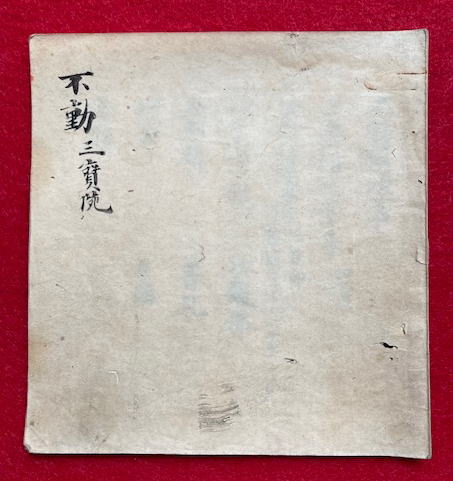 不動三寶院